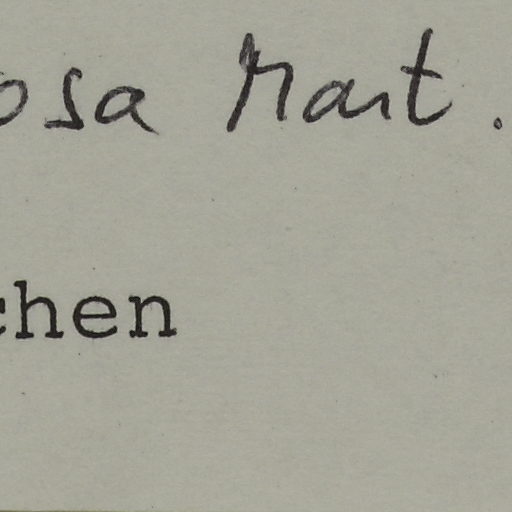 osa Mart.
chen